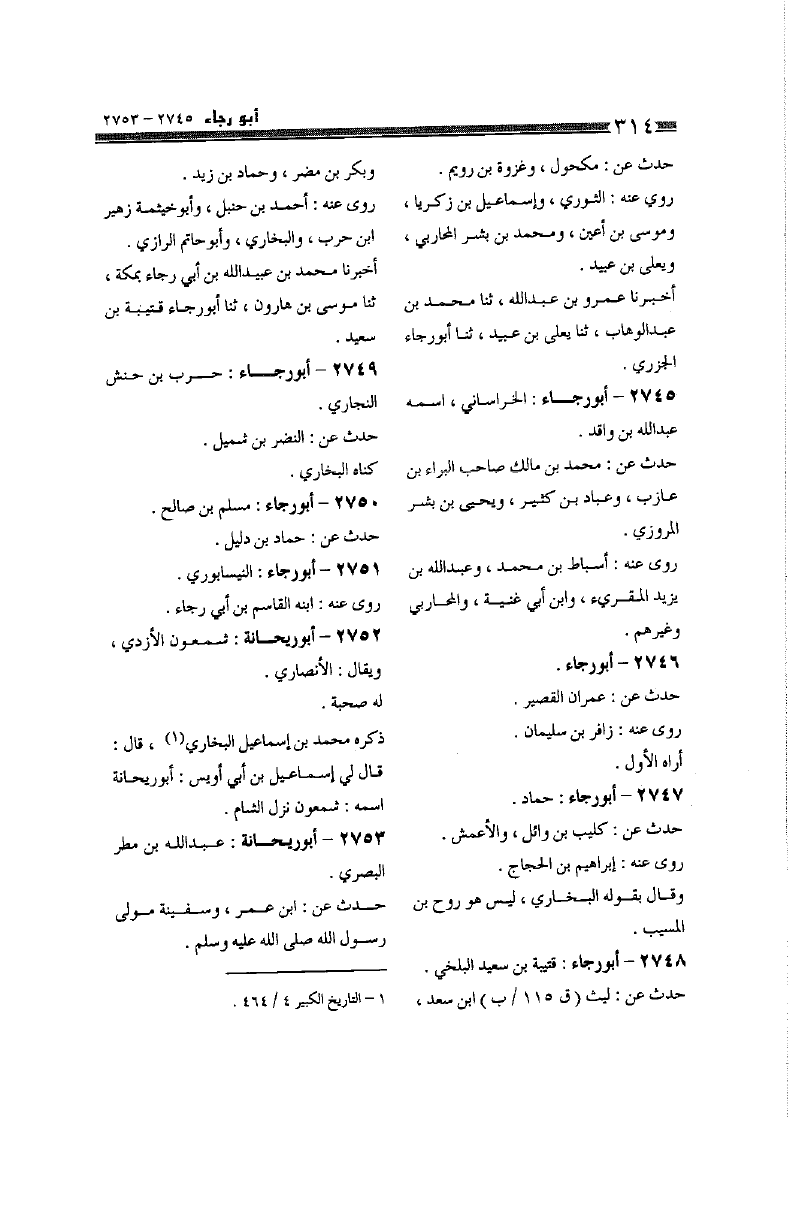 أبو رجاء ٢٧٤٥ – ٢٧٥٣
٣١٤
حدث عن : مكحول ، وغزوة بن رويم .
روي عنه : الثوري ، وإسماعيل بن زكريا ،
وموسى بن أعين ، ومحمد بن بشر المحاربي ،
ويعلى بن عبيد .
أخبرنا عمرو بن عبدالله ، ثنا محمد بن
عبدالوهاب ، ثنا يعلى بن عبيد ، ثنا أبورجاء
الجزري .
٢٧٤٥ – أبورجاء : الخراساني ، اسمه
عبدالله بن واقد .
حدث عن : محمد بن مالك صاحب البراء بن
عازب ، وعباد بن كثير ، ويحيى بن بشر
المروزي .
روى عنه : أسباط بن محمد ، وعبدالله بن
يزيد المقريء ، وابن أبي غنية ، والمحاربي
وغيرهم .
٢٧٤٦ – أبورجاء .
حدث عن : عمران القصير .
روى عنه : زافر بن سليمان .
أراه الأول .
٢٧٤٧ – أبورجاء : حماد .
حدث عن : كليب بن وائل ، والأعمش .
روى عنه : إبراهيم بن الحجاج .
وقال بقوله البخاري ، ليس هو روح بن
المسيب .
٢٧٤٨ – أبورجاء : قتيبة بن سعيد البلخي .
حدث عن : ليث ( ق ١١٥ / ب ) ابن سعد ،
وبكر بن مضر ، وحماد بن زيد .
روى عنه : أحمد بن حنبل ، وأبوخيثمة زهير
ابن حرب ، والبخاري ، وأبوحاتم الرازي .
أخبرنا محمد بن عبيدالله بن أبي رجاء بمكة ،
ثنا موسى بن هارون ، ثنا أبورجاء قتيبة بن
سعيد .
٢٧٤٩ – أبورجاء : حرب بن حنش
النجاري .
حدث عن : النضر بن شميل .
كناه البخاري .
٢٧٥٠ – أبورجاء : مسلم بن صالح .
حدث عن : حماد بن دليل .
٢٧٥١ – أبورجاء : النيسابوري .
روى عنه : ابنه القاسم بن أبي رجاء .
٢٧٥٢ – أبوريحانة : شمعون الأزدي ،
ويقال : الأنصاري .
له صحبة .
ذكره محمد بن إسماعيل البخاري(١) ، قال :
قال لي إسماعيل بن أبي أويس : أبوريحانة
اسمه : شمعون نزل الشام .
٢٧٥٣ – أبوريحانة : عبدالله بن مطر
البصري .
حدث عن : ابن عمر ، وسفينة مولى
رسول الله صلى الله عليه وسلم .
١ – التاريخ الكبير ٤ / ٤٦٤ .